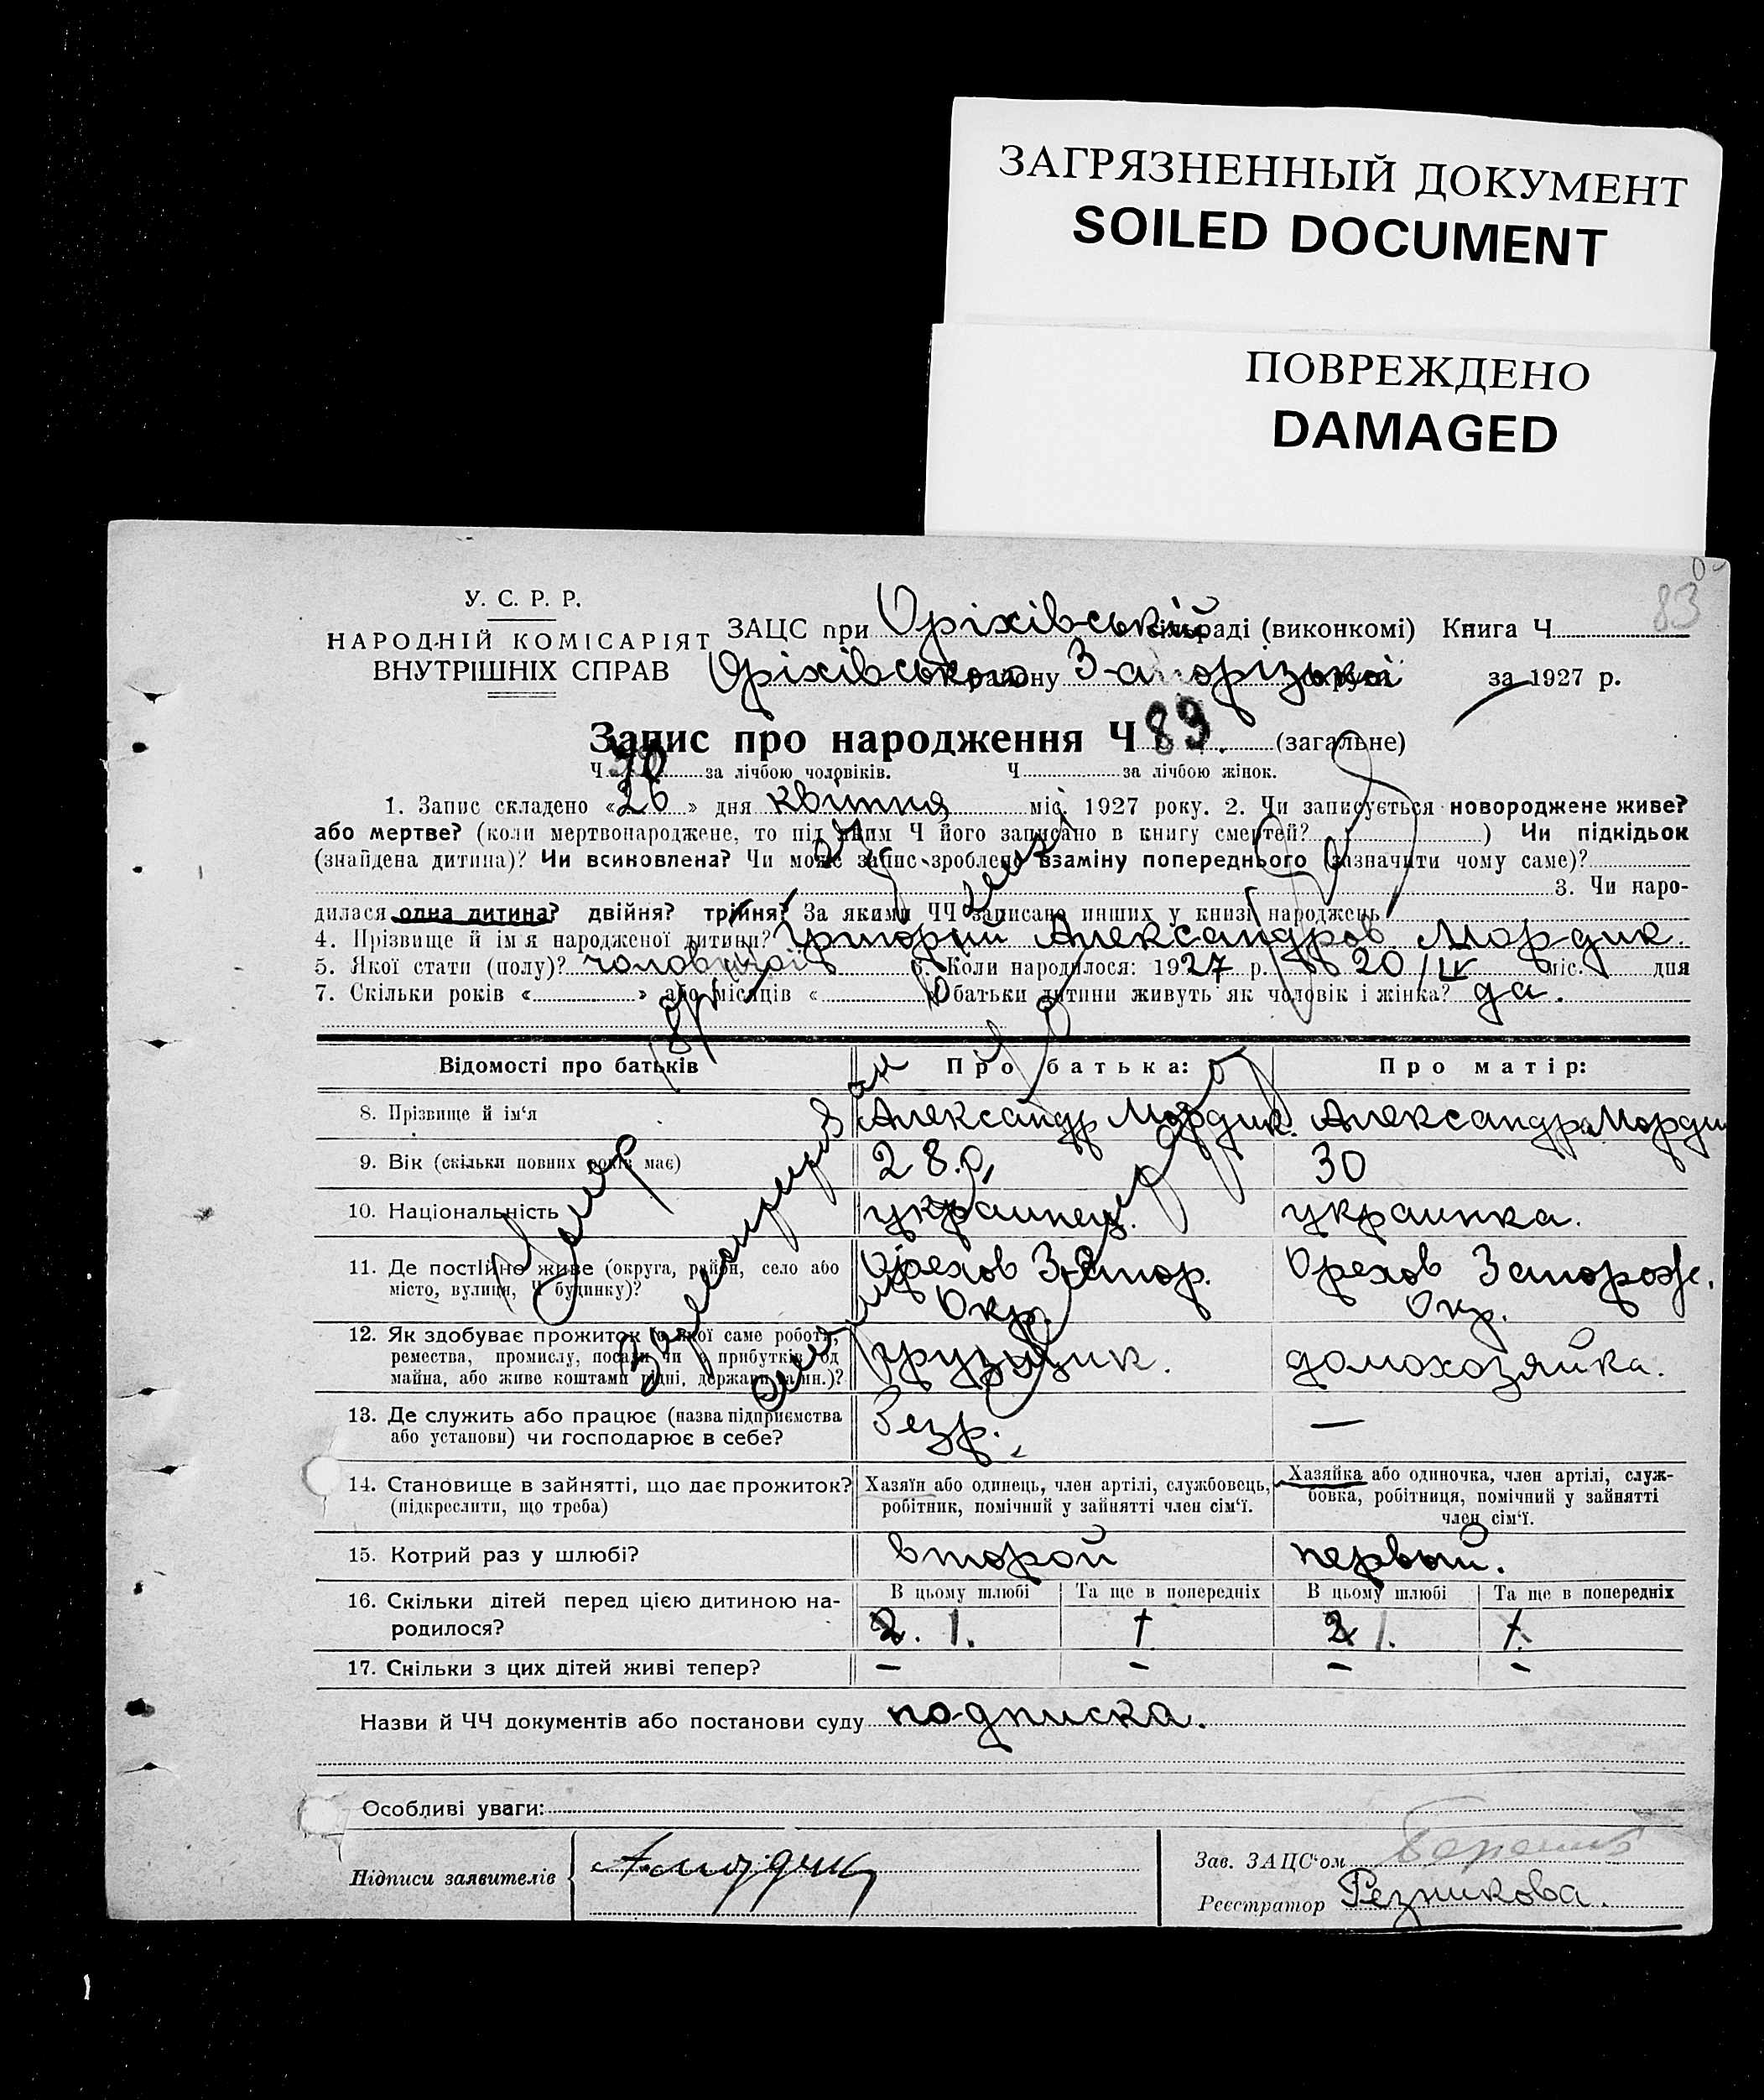 ЗАГРЯЗНЕННЫЙ ДОКУМЕНТ
SOILED DOCUMENT
ПОВРЕЖДЕНО
DAMAGED
83
У. С. Р. Р.
НАРОДНІЙ КОМІСАРІЯТ
ВНУТРІШНІХ СПРАВ
ЗАЦС при Оріхівській сільраді (виконкомі) Книга Ч
Оріхівського району З-апорізької округи за 1927 р.
Запис про народження Ч 89. (загальне)
Ч 30 за лічбою чоловіків. Ч за лічбою жінок.
1. Запис складено «26» дня квітня міс. 1927 року. 2. Чи записується новороджене живе?
або мертве? (коли мертвонароджене, то під яким Ч його записано в книгу смертей? ) Чи підкідьок
(знайдена дитина)? Чи всиновлена? Чи може запис зроблено взаміну попереднього (зазначити чому саме)?
3. Чи наро-
дилася одна дитина? двійня? трійня? За якими ЧЧ записано инших у книзі народжень
4. Прізвище й ім'я народженої дитини? Григорий Александров Мордик.
5. Якої стати (полу)? чоловічої 6. Коли народилося: 1927 р. 20/IV міс. дня
7. Скільки років « » або місяців « батьки дитини живуть як чоловік і жінка? да.
Відомості про батьків Про батька: Про матір:
8. Прізвище й ім'я Александр Мордик. Александра Морди
9. Вік (скільки повних років має) 28 р. 30
10. Національність украинец. украинка.
11. Де постійно живе (округа, район, село або Орехов Запор. Орехов Запорож.
місто, вулиця, Ч будинку)? Окр. Окр.
12. Як здобуває прожиток (з якої саме роботи,
ремества, промислу, посади чи з прибутків од грузчик. домохозяйка.
майна, або живе коштами рідні, держави та ин.)?
13. Де служить або працює (назва підприємства
або установи) чи господарює в себе? —
14. Становище в зайнятті, що дає прожиток? Хазяїн або одинець, член артілі, службовець, Хазяйка або одиночка, член артілі, служ-
(підкреслити, що треба) робітник, помічний у зайнятті член сім'ї. бовка, робітниця, помічний у зайнятті
член сім'ї.
15. Котрий раз у шлюбі? второй первый.
16. Скільки дітей перед цією дитиною на- В цьому шлюбі Та ще в попередніх В цьому шлюбі Та ще в попередніх
родилося? 2. 1. 2 1.
17. Скільки з цих дітей живі тепер? – – – –
Назви й ЧЧ документів або постанови суду подписка.
Особливі уваги:
Підписи заявителів А. Мордик
Зав. ЗАЦС'ом
Реєстратор Резникова.
Умер